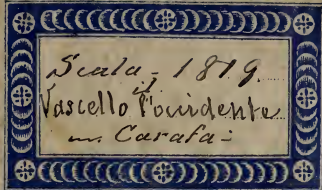 Scala - 1819.
il
Vascello l'occidente
Carafa -